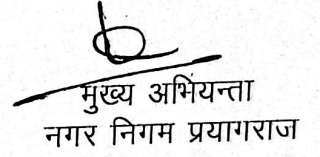 मुख्य अभियन्ता
नगर निगम प्रयागराज